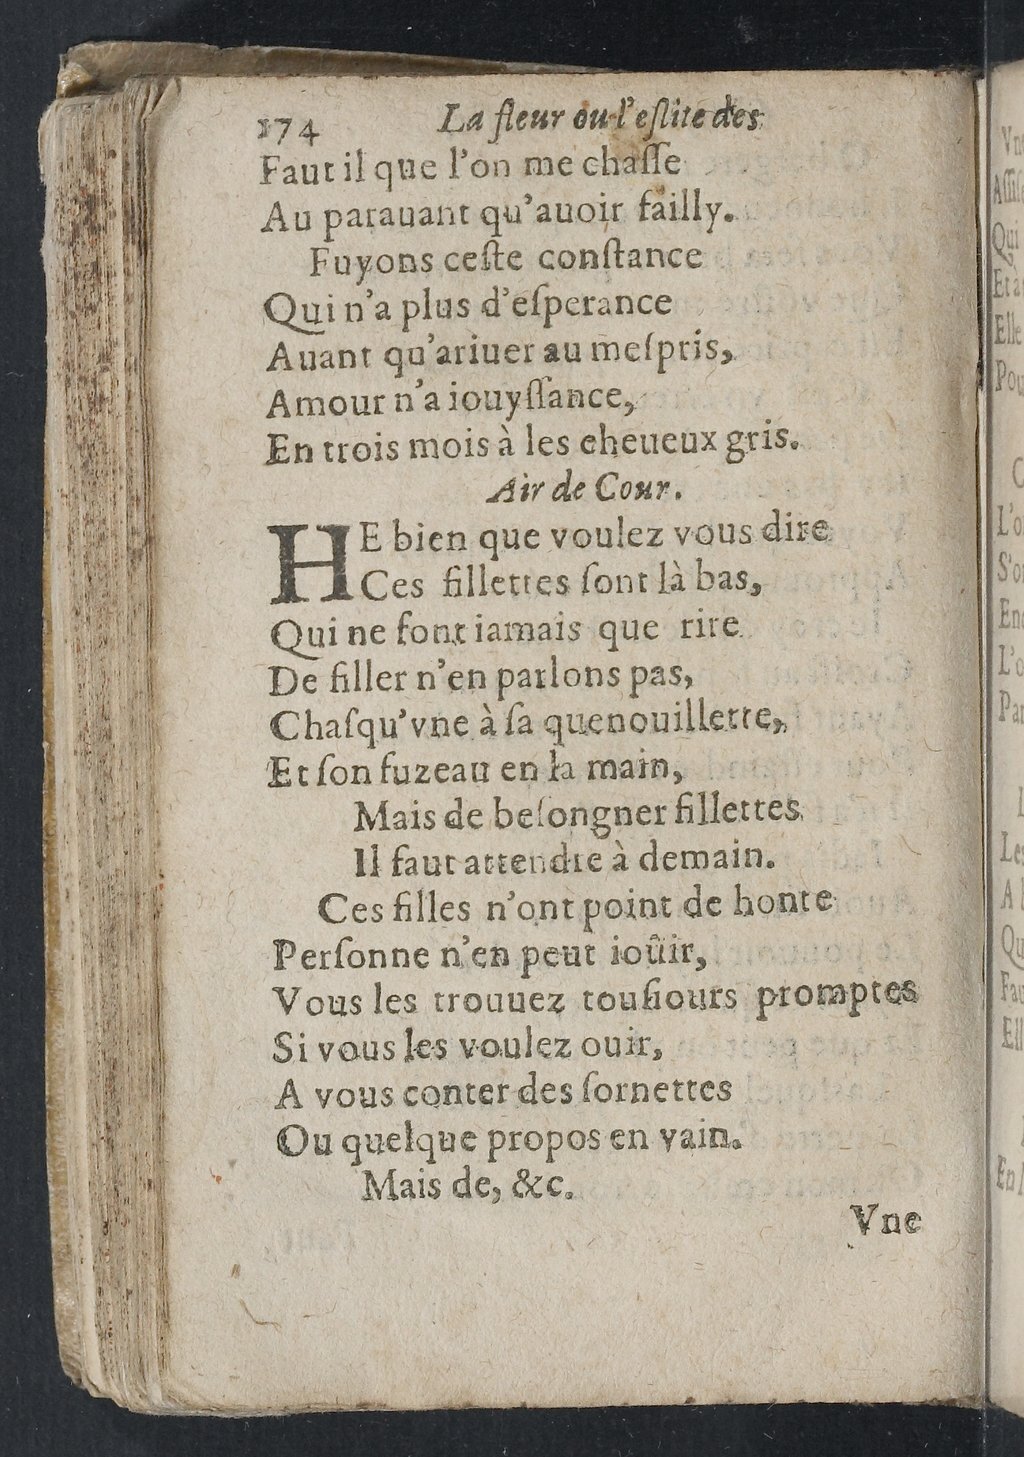 174 La fleur ou l'eſlite des
Faut il que l'on me chaſſe
Au parauant qu'auoir failly.
Fuyons ceſte conſtance
Qui n'a plus d'eſperance
Auant qu'ariuer au meſpris,
Amour n'a iouyſſance,
En trois mois à les cheueux gris.
Air de Cour.
HE bien que voulez vous dire
Ces fillettes ſont là bas,
Qui ne font iamais que rire
De filler n'en parlons pas,
Chaſqu'vne à ſa quenouillette,
Et ſon fuzeau en la main,
Mais de beſongner fillettes
Il faut attendre à demain.
Ces filles n'ont point de honte
Perſonne n'en peut ioûir,
Vous les trouuez touſiours promptes
Si vous les voulez ouir,
A vous conter des ſornettes
Ou quelque propos en vain.
Mais de, &c.
Vne